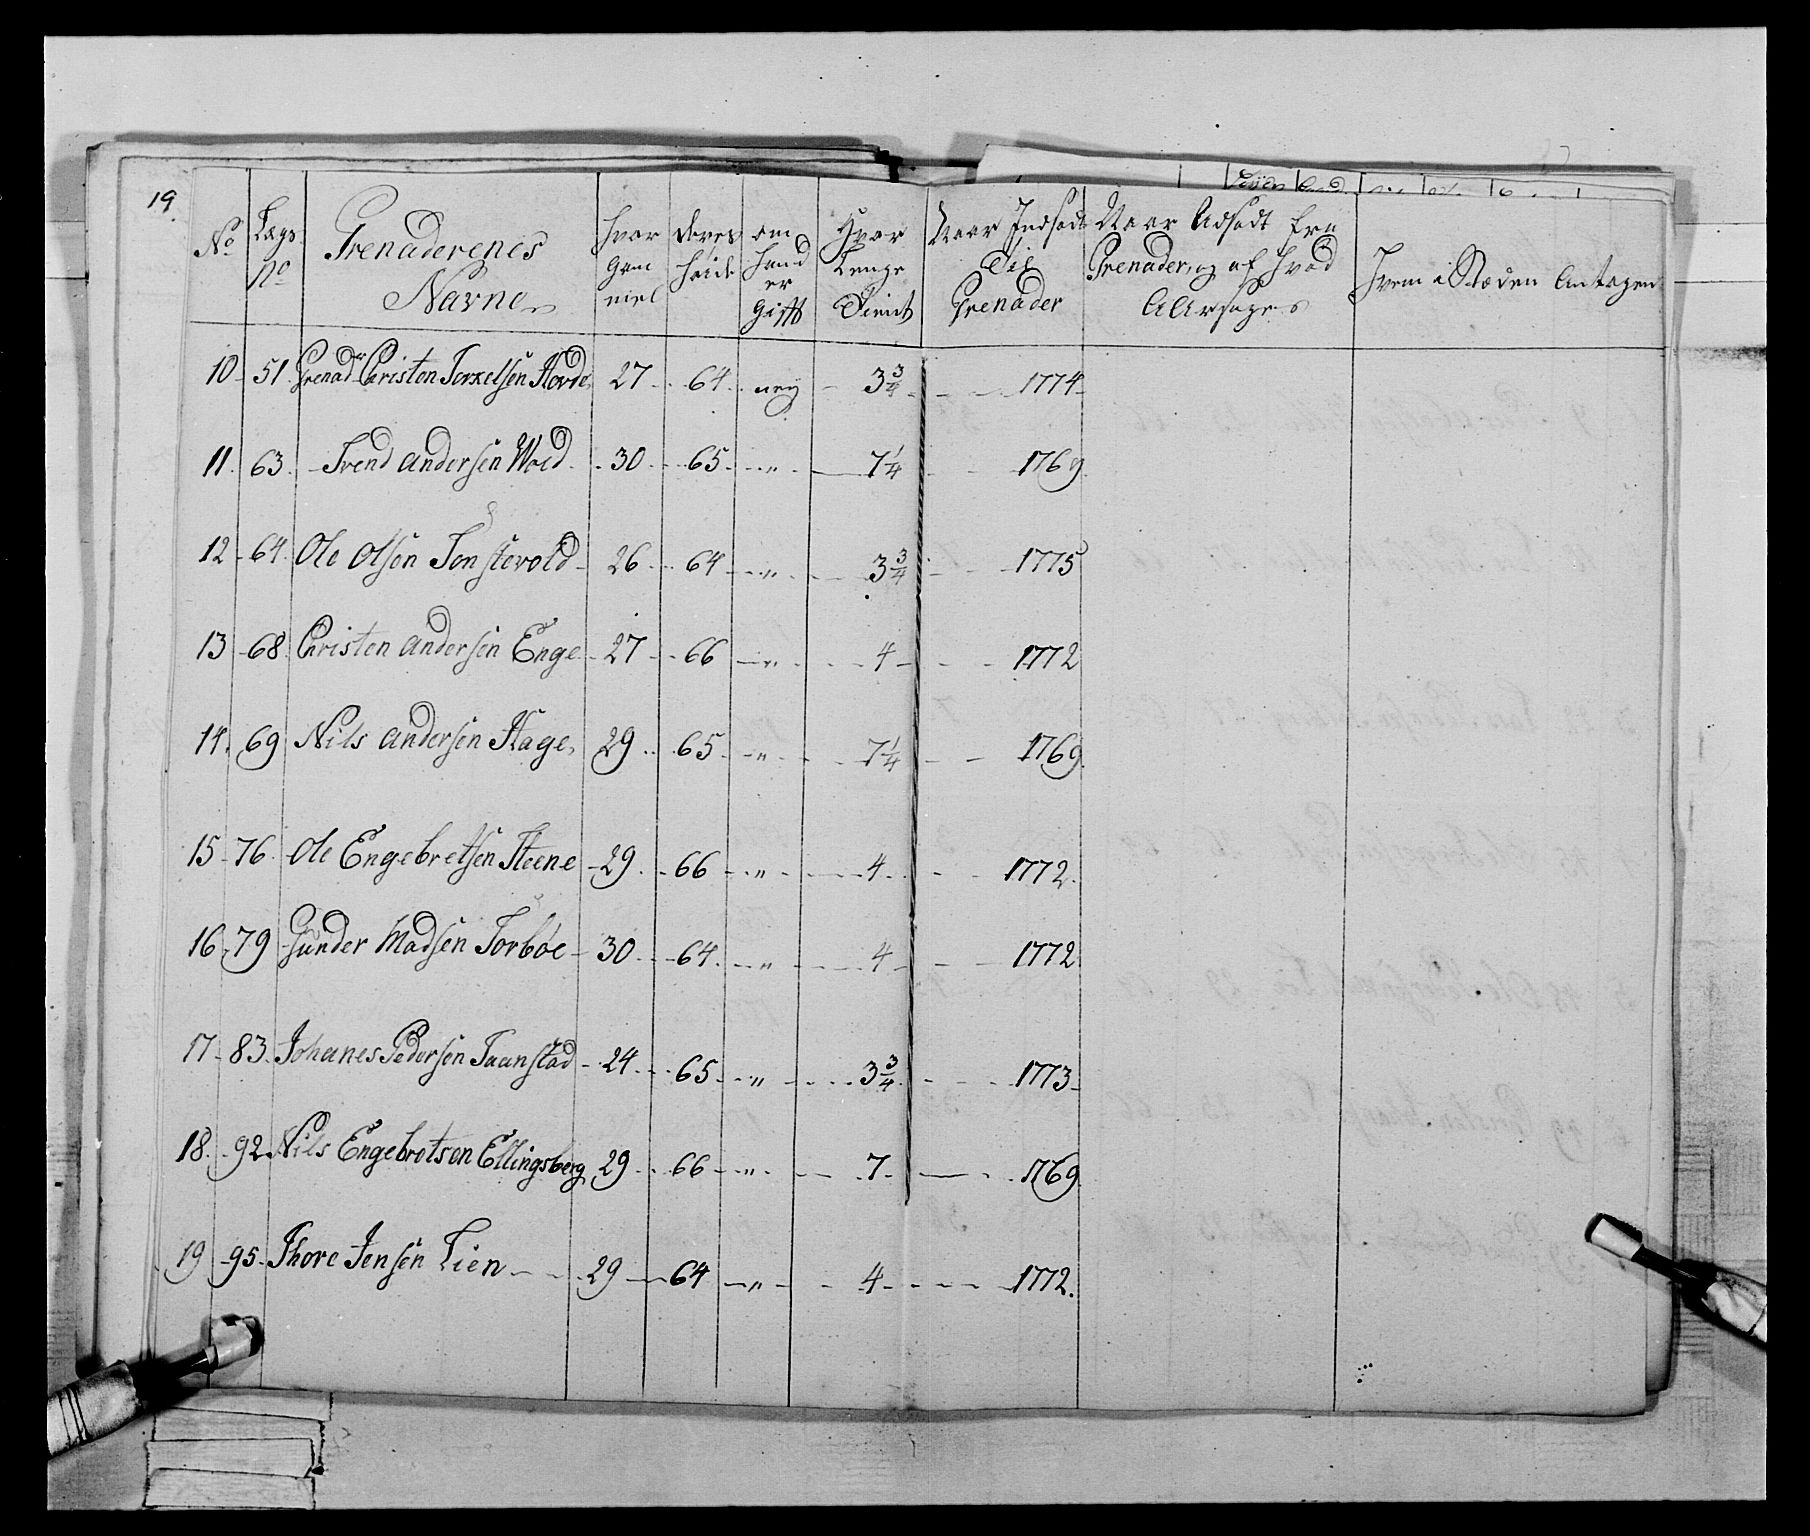 19.
No | Lægs No | Grenaderenes Navne | hvor Gam mel | deres høide | om hand er Gift | Hvor Lenge Tient | Naar Indsadt Til Grenader | Naar Udsadt fra Grenader, og af hvad Aarsager | Hvem i Stæden Antagen
10 - 51. Grenadr Christen Torkelsen Hovde 27 - 64 - ney - 3 3/4 - 1774
11. 63. Svend Andersen Wold - 30 - 65 - " - 7 1/4 - 1769
12 - 64. Ole Olsen Tonstevold - 26 - 64 - " - 3 3/4 - 1775
13 - 68. Christen Andersen Enge - 27 - 66 - " - 4 - 1772
14. 69 Nils Andersen Hage, 29 - 65 - " - 7 1/4 - 1769.
15 - 76. Ole Engebretsen Steene - 29 - 66 - " - 4 - 1772.
16 - 79 Gunder Madsen Torbøe - 30 - 64 - " - 4 - 1772
17 - 83. Johanes Pedersen Taanstad - 24 - 65 - " - 3 3/4 - 1773
18. - 92. Nils Engebretsen Ellingsberg 29 - 66 - " - 7 - 1769.
19 - 95. Thore Jensen Lien - 29 - 64 - " - 4 - 1772.